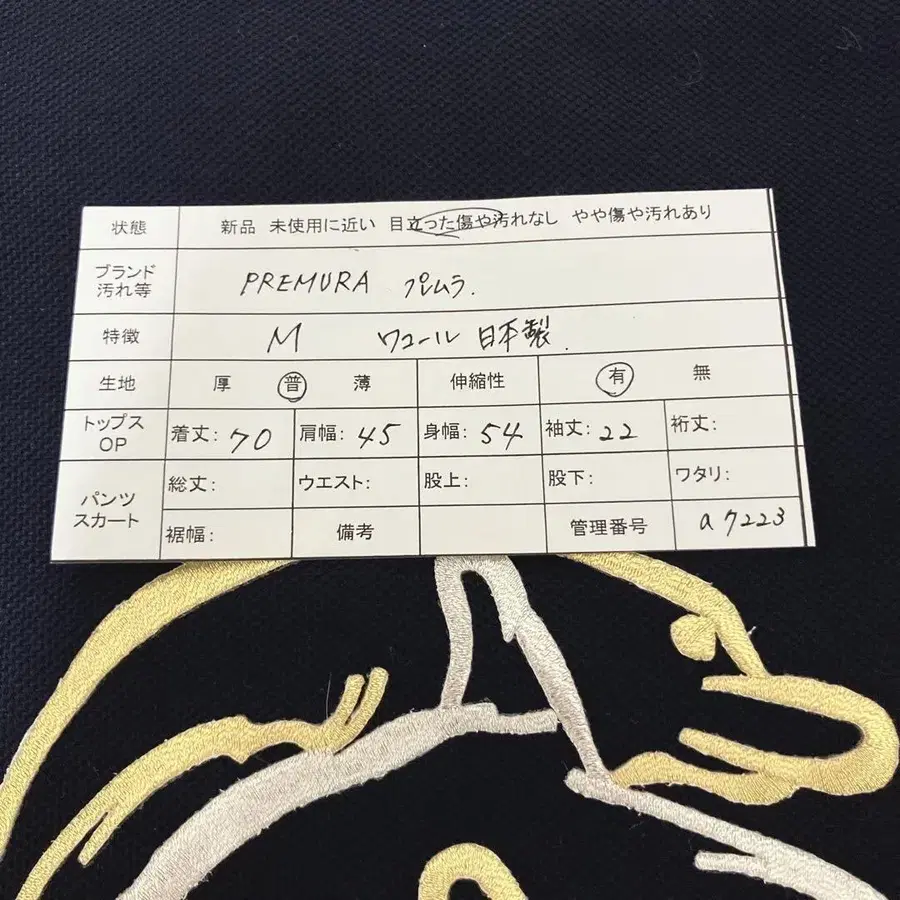 状態 新品 未使用に近い 目立った傷や汚れなし やや傷や汚れあり
ブランド 汚れ等 PREMURA プレムラ.
特徴 M ワコール 日本製.
生地 厚 普 薄 伸縮性 有 無
トップス OP 着丈: 70 肩幅: 45 身幅: 54 袖丈: 22 裄丈:
パンツ スカート 総丈: ウエスト: 股上: 股下: ワタリ:
裾幅: 備考 管理番号 a7223